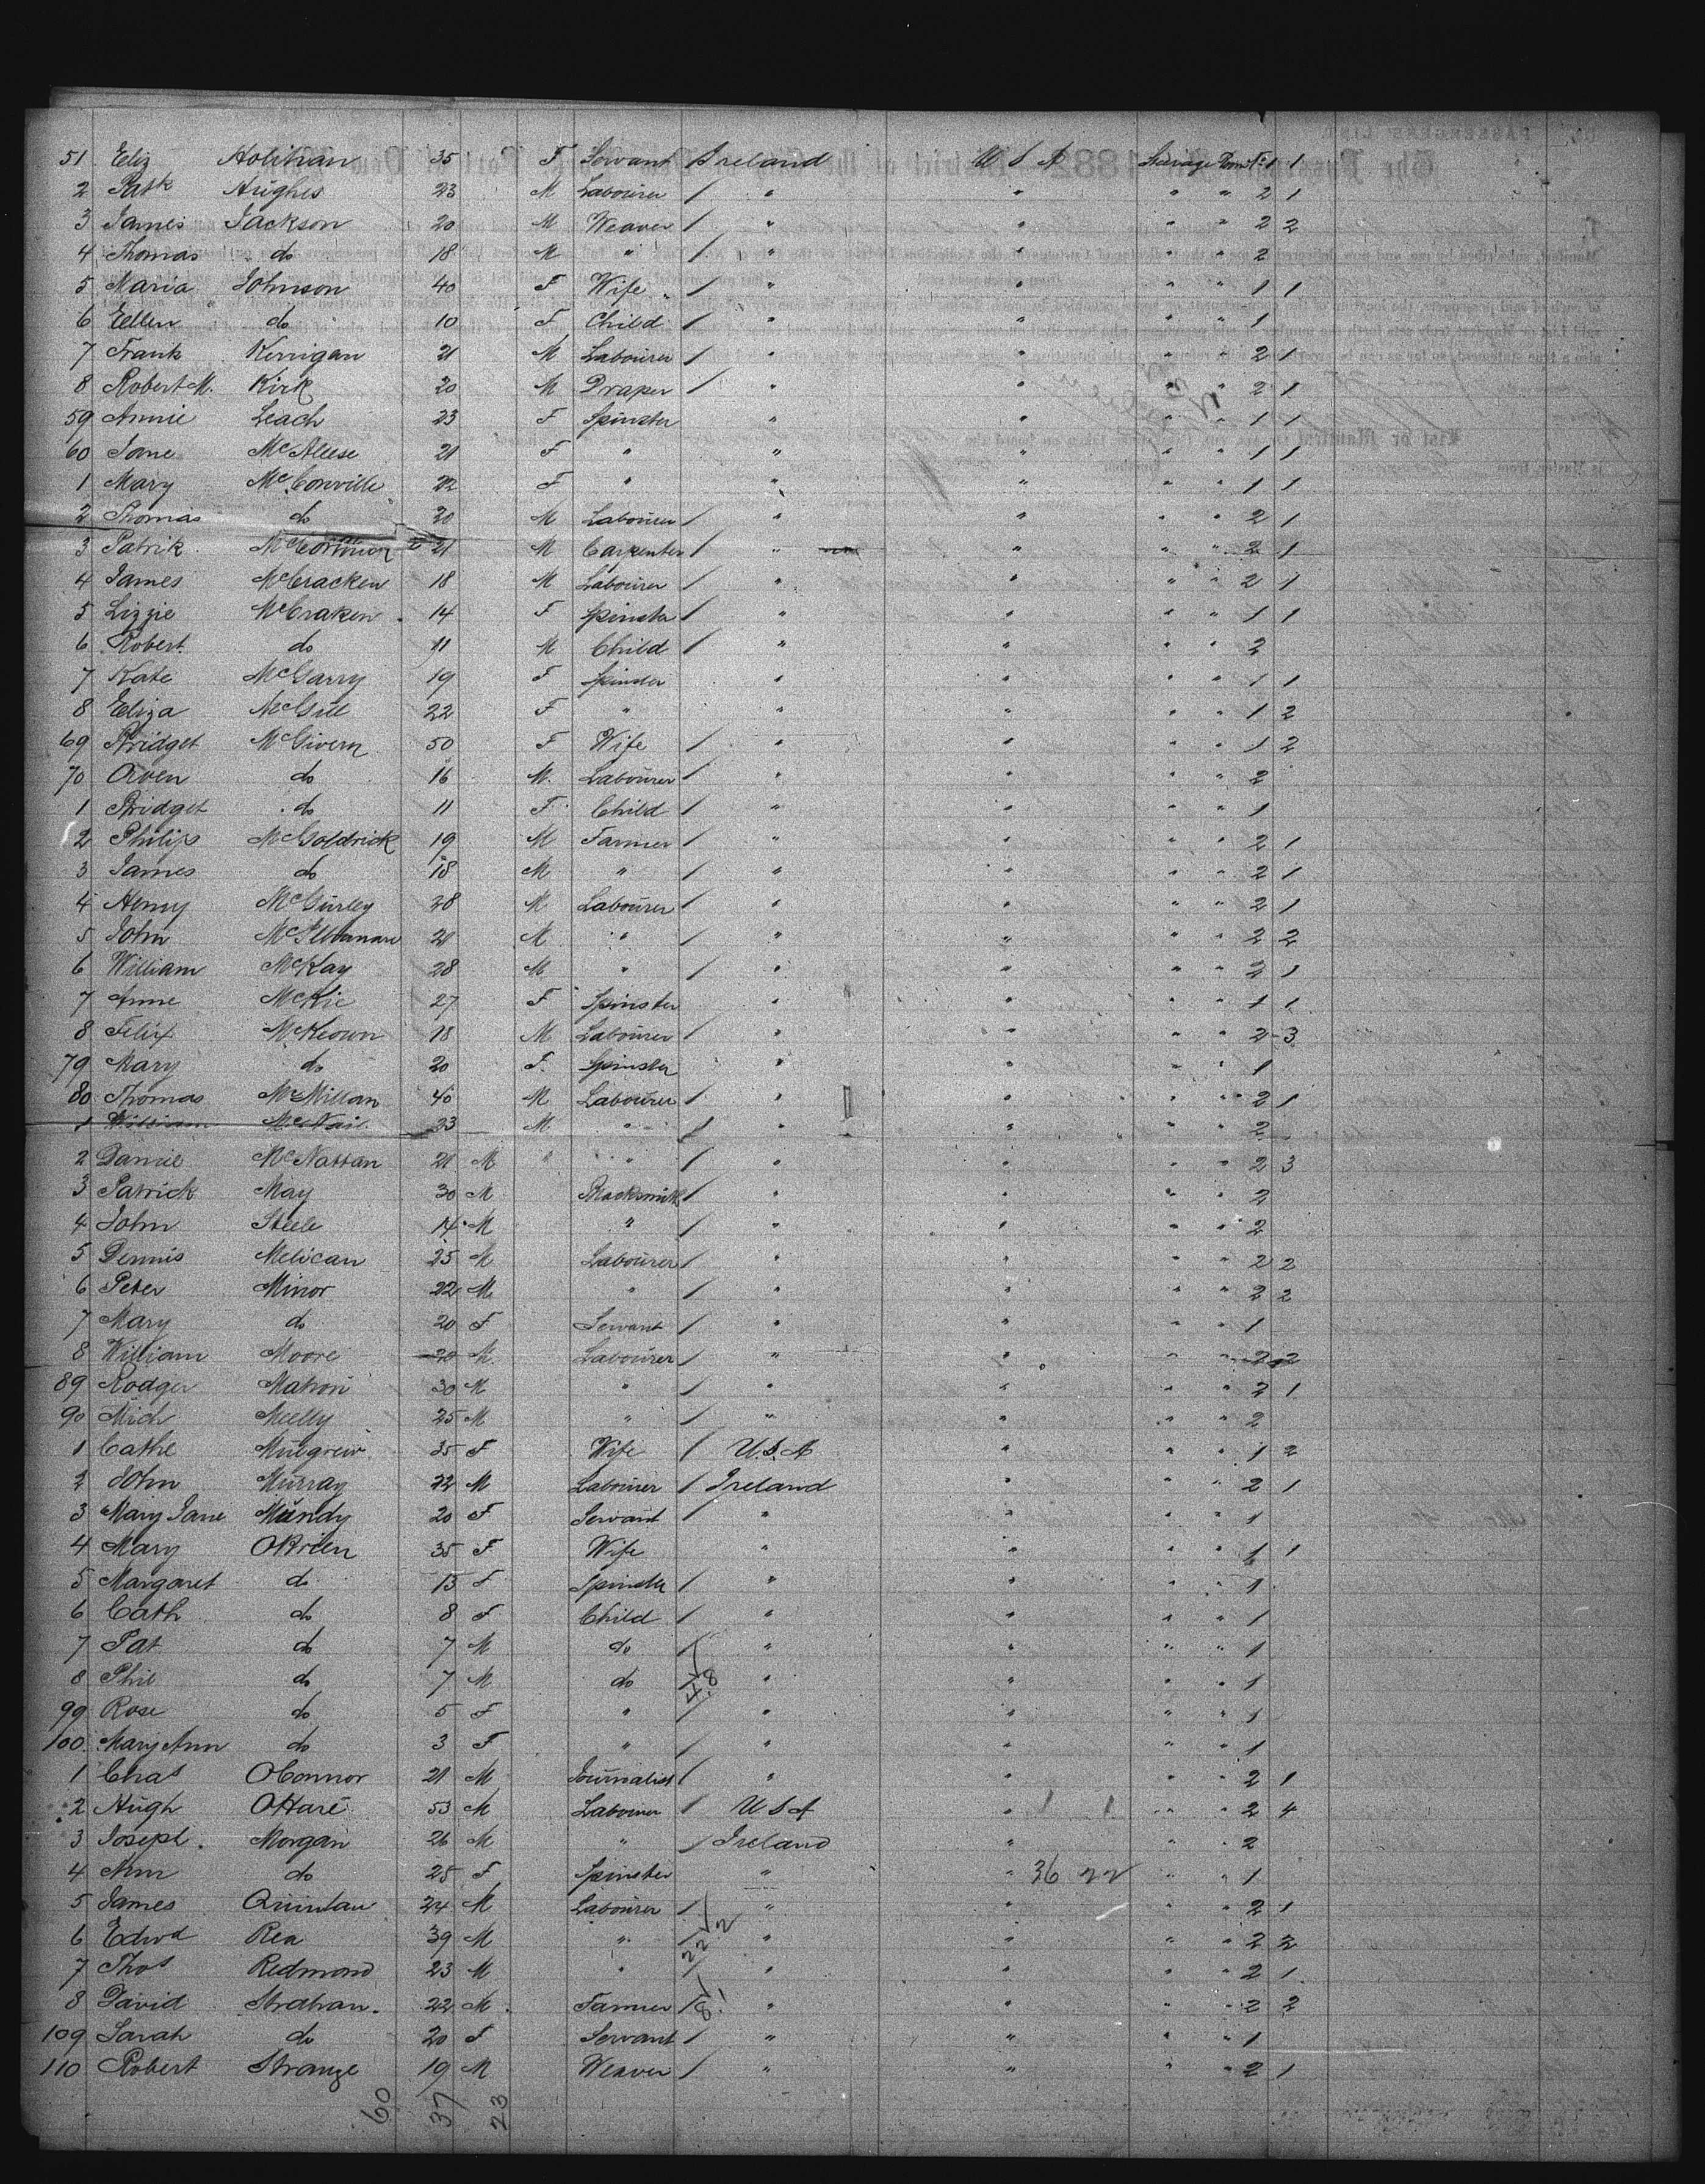 51 Eliz Holihan 35 F Servant Ireland U S A Steerage 1 1
2 Patk Hughes 23 M Labourer / " " " " 2 1
3 James Jackson 20 M Weaver / " " " " 2 2
4 Thomas do 18 M " / " " " " 2
5 Maria Johnson 40 F Wife / " " " " 1 1
6 Ellen do 10 F Child / " " " " 1
7 Frank Kerrigan 21 M Labourer / " " " " 2 1
8 Robert M. Kirk 20 M Draper / " " " " 2 1
59 Annie Leach 23 F Spinster " " " " 1 1
60 Jane McAleese 21 F " " " " " 1 1
1 Mary McConville 22 F " " " " " 1 1
2 Thomas do 20 M Labourer / " " " " 2 1
3 Patrik 21 M Carpenter / " " " " 2 1
4 James McCracken 18 M Labourer / " " " " 2 1
5 Lizzie McCraken 14 F Spinster / " " " " 1 1
6 Robert do 11 M Child / " " " " 2
7 Kate McGarry 19 F Spinster " " " " 1 1
8 Eliza McGill 22 F " " " " " 1 2
69 Bridget McGivern 50 F Wife / " " " " 1 2
70 Owen do 16 M. Labourer / " " " " 2
1 Bridget do 11 F Child / " " " " 1
2 Philip McGoldrick 19 M Farmer / " " " " 2 1
3 James do 18 M " / " " " " 2 1
4 Henry McGurley 38 M Labourer / " " " " 2 1
5 John McIlvanan 21 M " / " " " " 2 2
6 William McKay 28 M " / " " " " 2 1
7 Anne McKie 27 F Spinster " " " " 1 1
8 Felix McKeown 18 M Labourer / " " " " 2 3
79 Mary do 20 F. Spinster " " " " 1
80 Thomas McMillan 40 M Labourer / " " " " 2 1
1 William McNair 23 M " / " " " " 2
2 Daniel McNattan 21 M " / " " " " 2 3
3 Patrick May 30 M Blacksmith / " " " " 2
4 John Steele 14 M " / " " " " 2
5 Dennis Melican 25 M Labourer / " " " " 2 2
6 Peter Minor 22 M " / " " " " 2 2
7 Mary do 20 F Servant / " " " " 1
8 William Moore 20 M. Labourer / " " " " 2 2
89 Rodger Matron 30 M " / " " " " 2 1
90 Mich 25 M " / " " " " 2
1 Cathe Mulgrew 35 F Wife / U.S.A " " " 1 2
2 John Murray 22 M Labourer / Ireland " " " 2 1
3 Mary Jane Mundy 20 F Servant / " " " " 1
4 Mary OBrien 35 F Wife " " " " 1 1
5 Margaret do 13 F Spinster / " " " " 1
6 Cath do 8 F Child / " " " " 1
7 Pat do 7 M do / " " " " 1
8 Phil do 7 M do / 48 " " " " 1
99 Rose do 5 F " / " " " " 1
100 Mary Ann do 3 F " / " " " " 1
1 Chas OConnor 21 M Journalist / " " " " 2 1
2 Hugh OHare 53 M Labourer / U S A " 1 1 " " 2 4
3 Joseph Morgan 26 M " / Ireland " " " 2
4 Ann do 25 F Spinster " " 36 22 " " 1
5 James Quinlan 24 M Labourer / " " " " 2 1
6 Edwd Rea 39 M " / " " " " 2 2
7 Thos Redmond 23 M " / " " " " 2 1
8 David Strahan. 22 M Farmer / " " " " 2 2
109 Sarah do 20 F Servant / " " " " 1
110 Robert Strange 19 M Weaver / " " " " 2 1
60 37 23